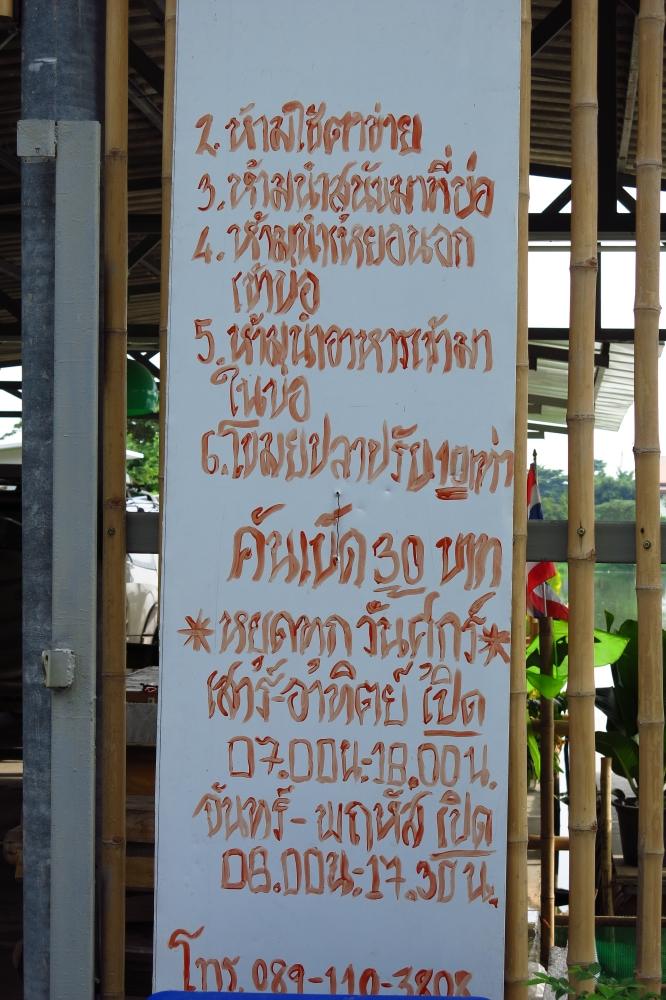 2. ห้ามใช้ตาข่าย
3. ห้ามนำสุนัขมาที่บ่อ
4. ห้ามนำเหยื่อนอก
เข้าบ่อ
5. ห้ามนำอาหารเข้ามา
ในบ่อ
6. โขมยปลาปรับ 10 เท่า
คันเบ็ด 30 บาท
*หยุดทุก วันศุกร์*
เสาร์-อาทิตย์ เปิด
07.00น.-18.00น.
จันทร์-พฤหัส เปิด
08.00น.-17.30น.
โทร. 089-110-3808